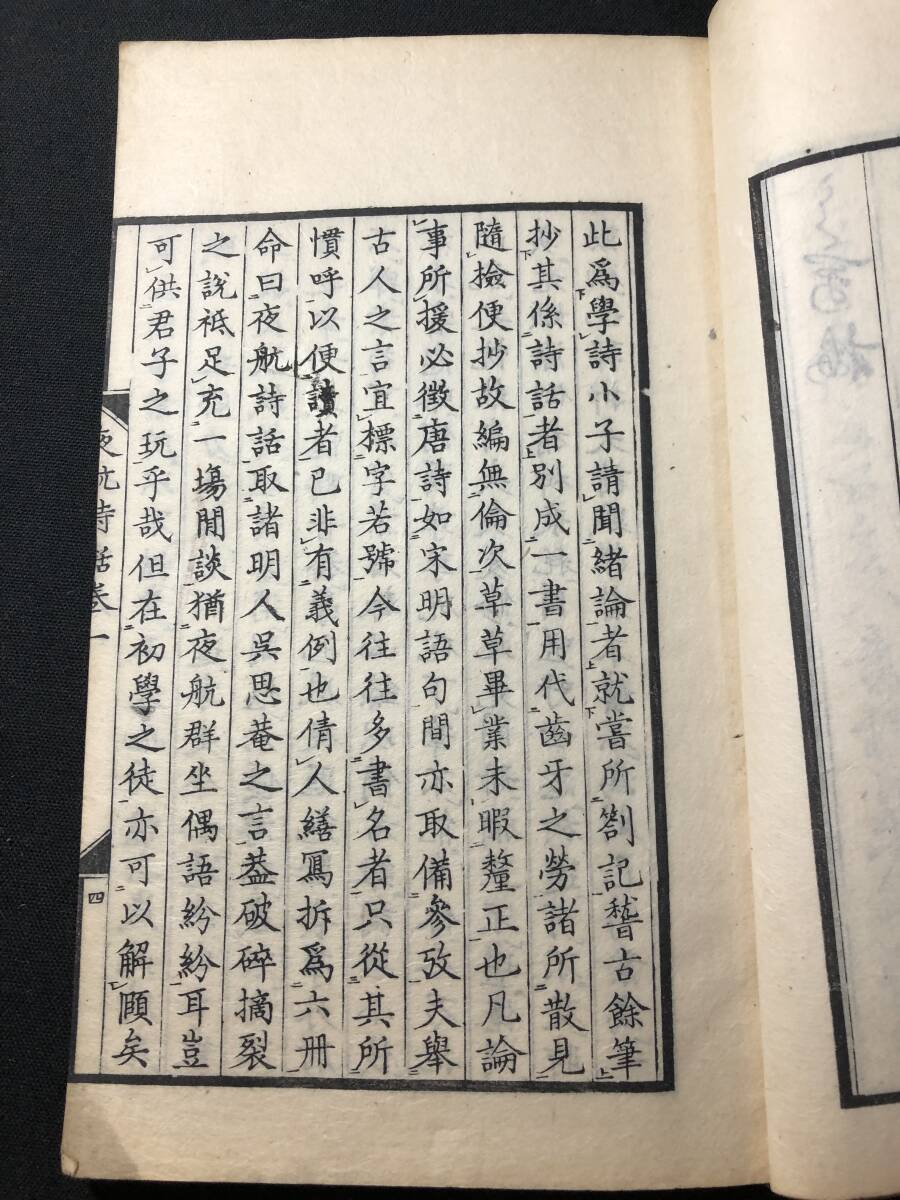 此爲學詩小子請聞緒論者就嘗所劄記稽古餘筆
抄其係詩話者別成一書用代齒牙之勞諸所散見
隨撿便抄故編無倫次草草畢業未暇釐正也凡論
事所援必徵唐詩如宋明語句間亦取備參攷夫舉
古人之言宜標字若號今往往多書名者只從其所
慣呼以便讀者已非有義例也倩人繕寫拆爲六冊
命曰夜航詩話取諸明人吳思菴之言葢破碎摘裂
之說祗足充一場閒談猶夜航群坐偶語紛紛耳豈
可供君子之玩乎哉但在初學之徒亦可以解頤矣
夜航詩話卷一
四